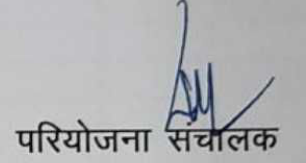 परियोजना संचालक